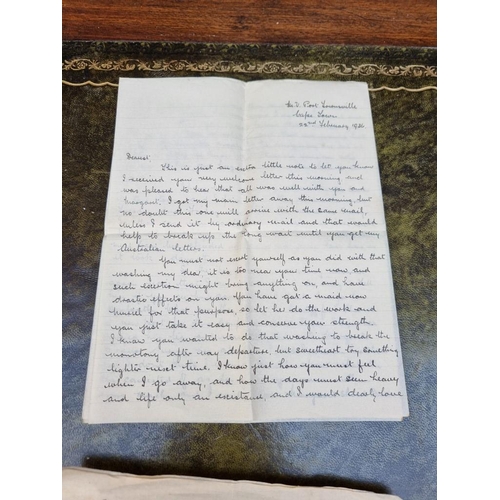 Port
Cape Town
22nd February 1926
Dearest,
This is just an extra little note to let you know
I received your very welcome letter this morning and
was pleased to hear that all was well with you and
I got my main letter away this morning but
no doubt this one will arrive with the same mail,
unless I send it by ordinary mail and that would
help to break up the long wait until you get my
Australian letters.
You must not exert yourself as you did with that
washing my dear, it is too near your time now and
such exertion might bring anything on, and have
drastic effects on you. You have got a maid now
for that purpose, so let her do the work and
you just take it easy and conserve your strength.
I know you wanted to do that washing to break the
monotony after my departure, but sweetheart try something
lighter next time. I know just how you must feel
when I go away, and how the days must seem heavy
and life only an existence, and I would dearly love